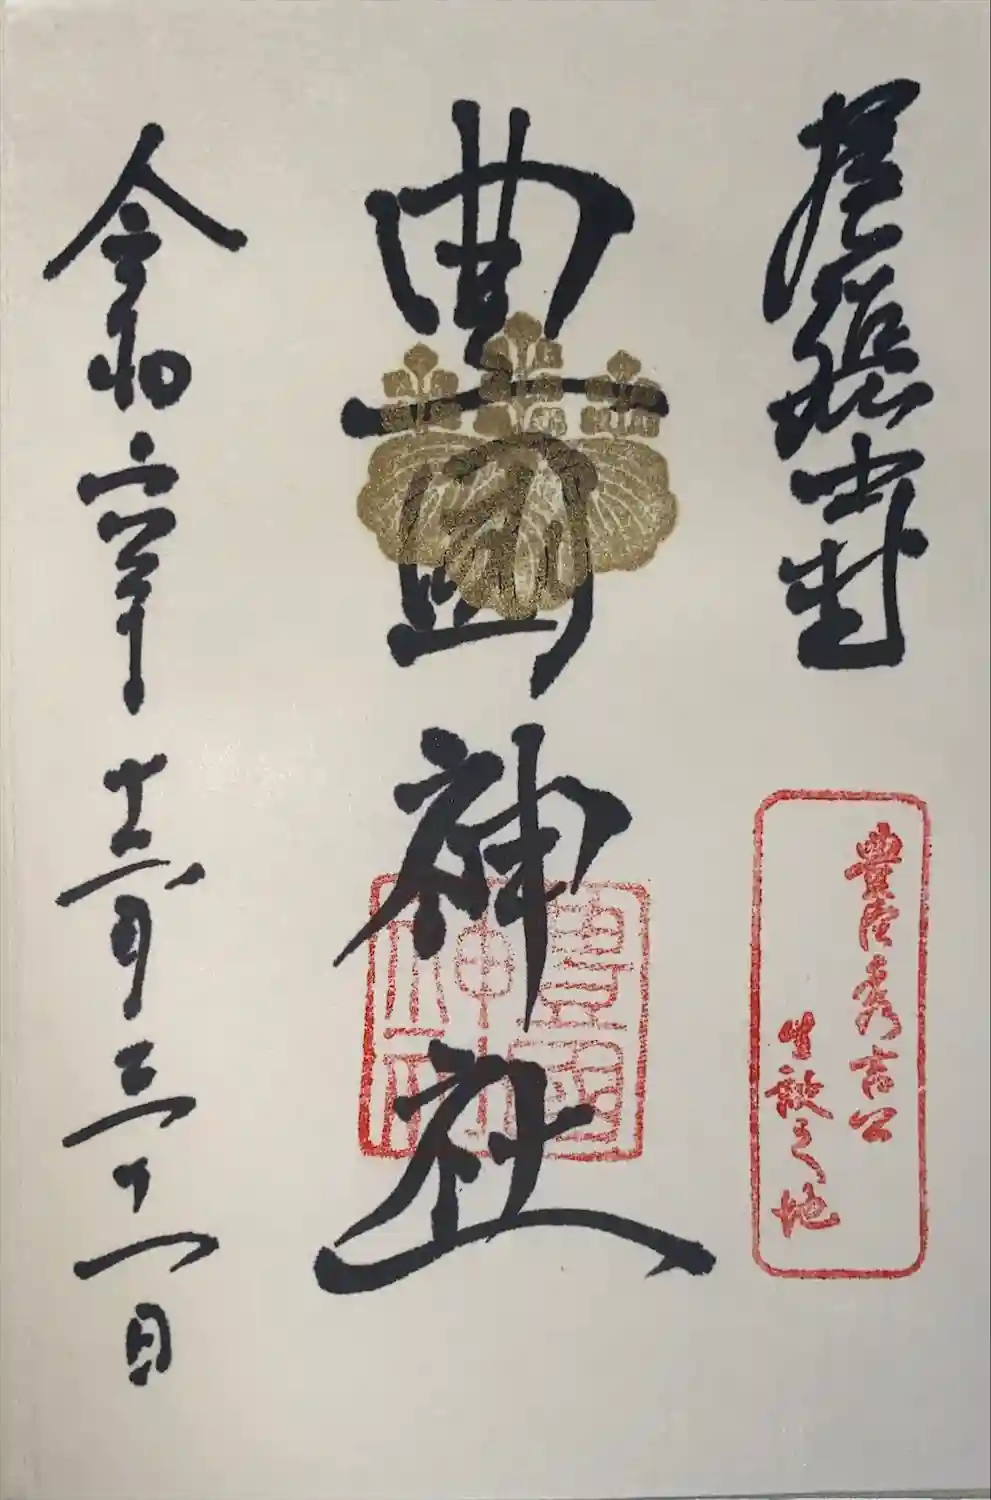 豊國神社
令和六年十二月三十一日
豊臣秀吉公
生誕之地
豊國
神社